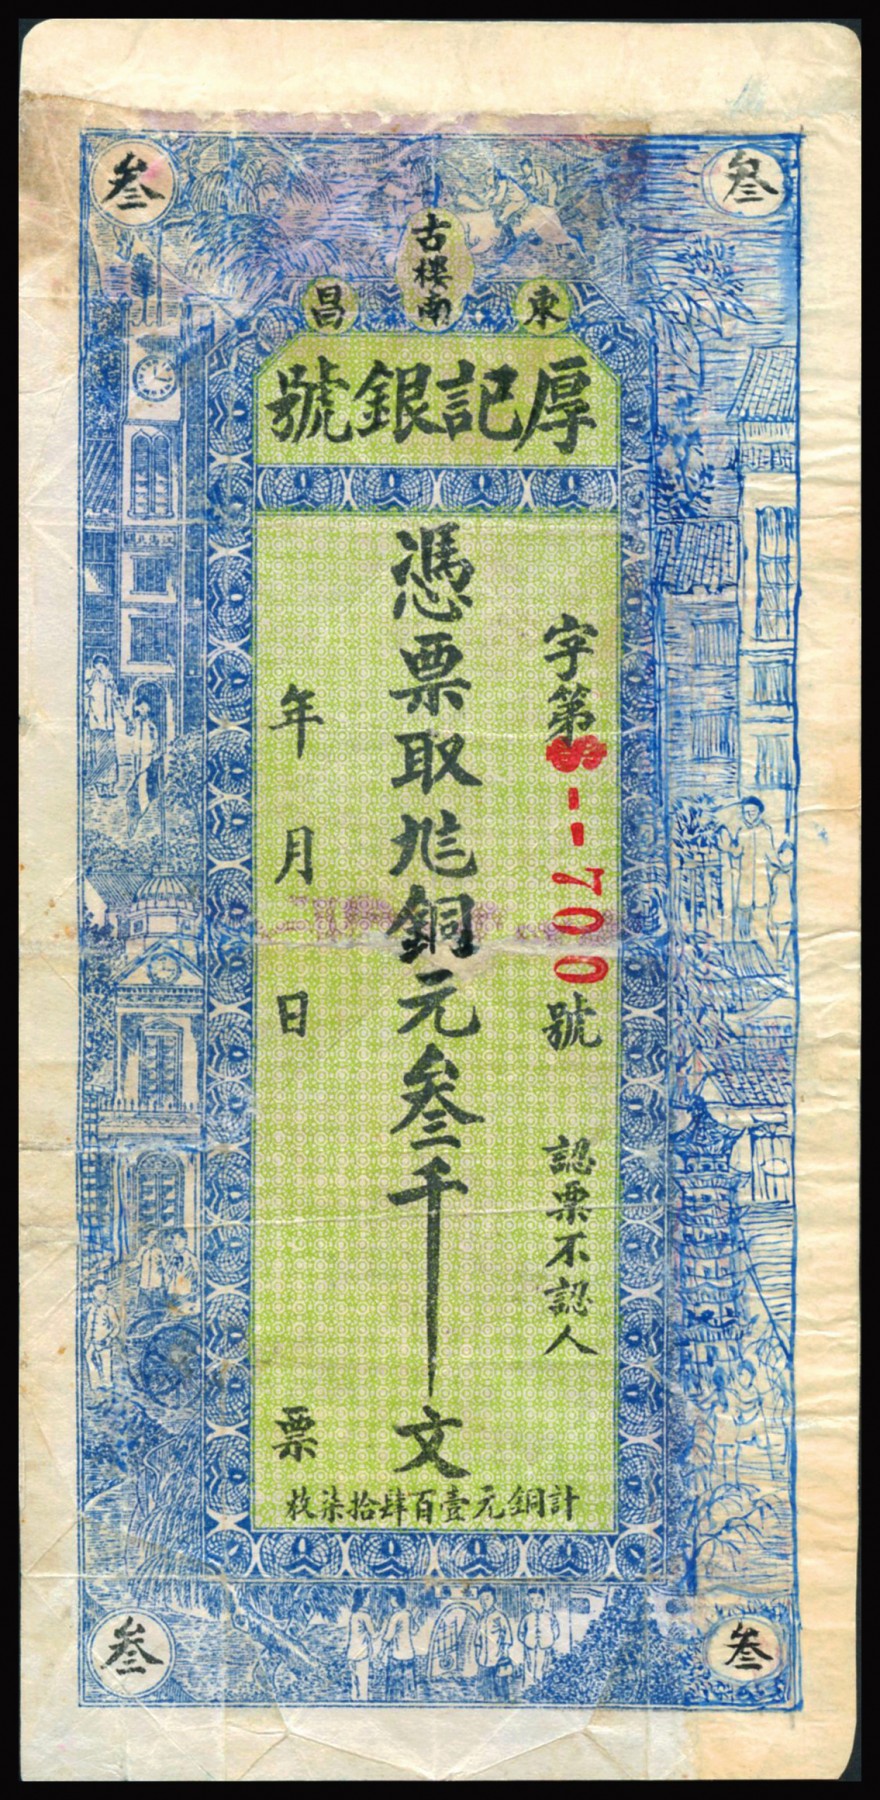 叁
叁
古樓南
東昌
厚記銀號
字第
S--700
號
認票不認人
憑票取兊銅元叁千文
年月日
票
計銅元壹百肆拾柒枚
江海北關
叁
叁